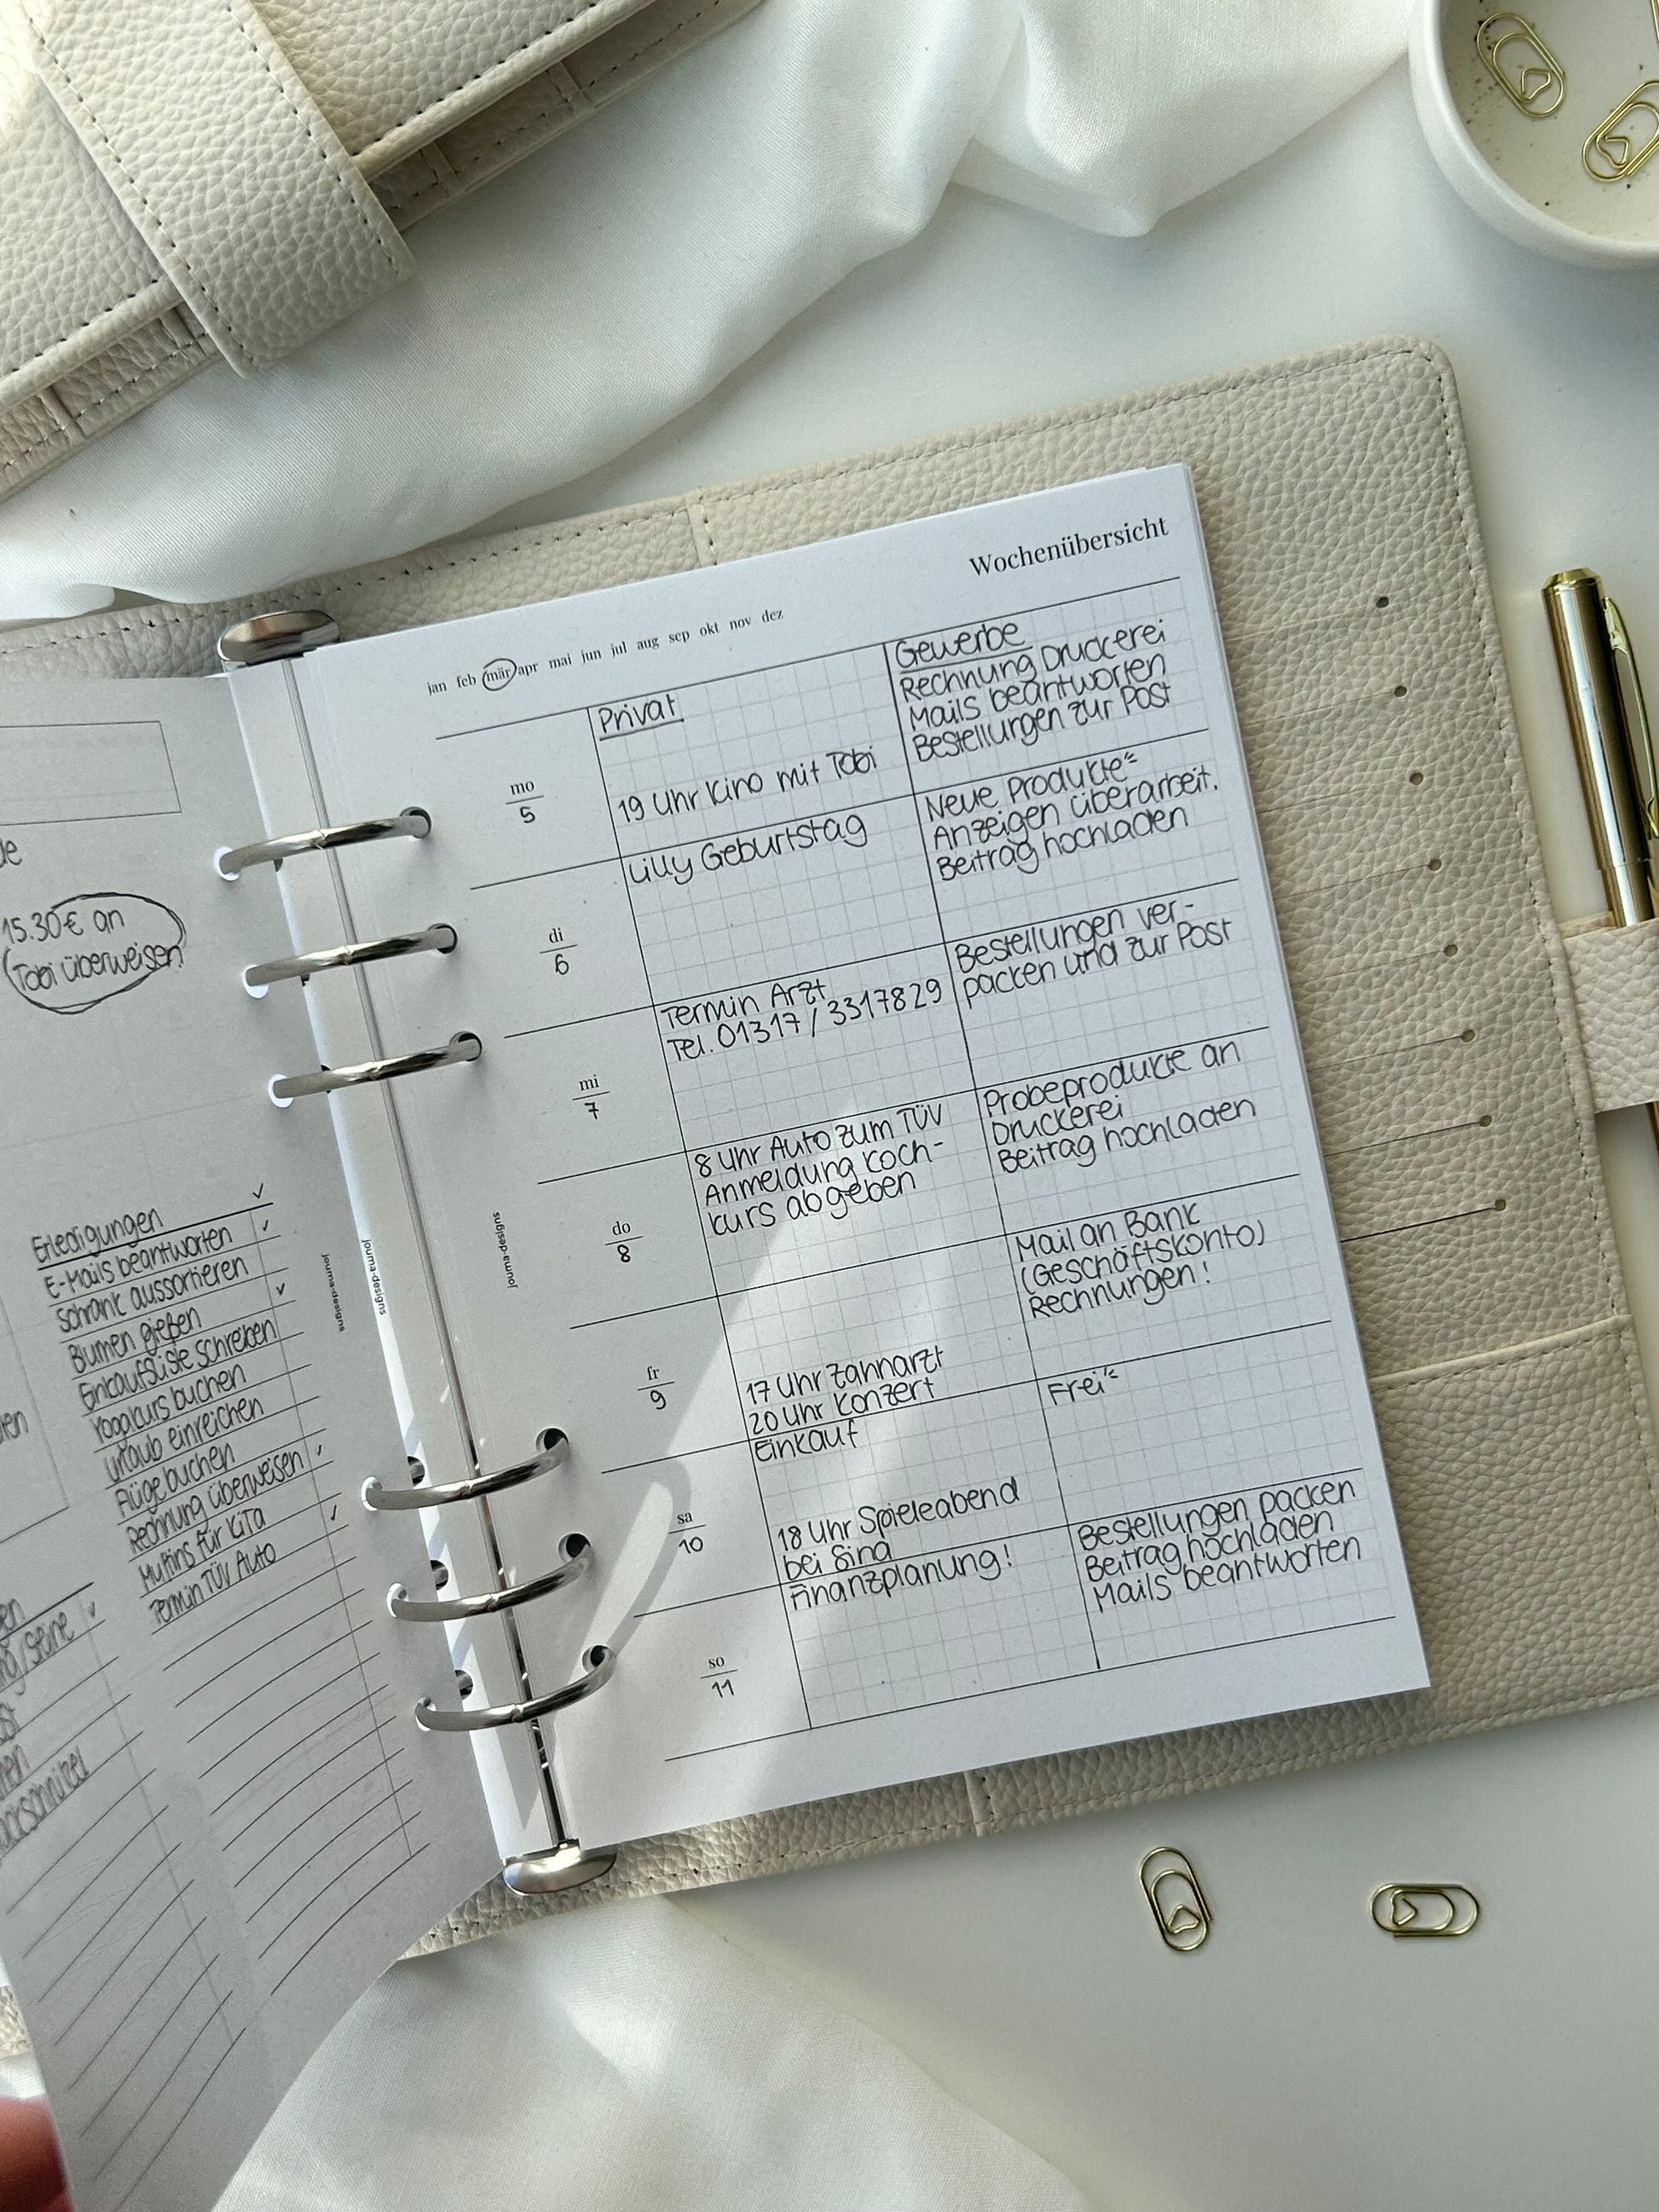 15.30€ an
Tobi überweisen
Erledigungen ✓
E-Mails beantworten ✓
Schrank aussortieren
Blumen gießen ✓
Einkaufsliste schreiben
Yogakurs buchen
Urlaub einreichen
Flüge buchen
Rechnung überweisen ✓
Muffins für KiTa
Termin TÜV Auto ✓
journa-designs
journa-designs
journa-designs
Wochenübersicht
jan feb mär apr mai jun jul aug sep okt nov dez
Privat
Gewerbe
mo
5
19 Uhr Kino mit Tobi
Rechnung Druckerei
Mails beantworten
Bestellungen zur Post
di
6
Lilly Geburtstag
Neue Produkte
Anzeigen überarbeit.
Beitrag hochladen
mi
7
Termin Arzt
Tel. 01317 / 3317829
Bestellungen ver-
packen und zur Post
do
8
8 Uhr Auto zum TÜV
Anmeldung Koch-
kurs abgeben
Probeprodukte an
Druckerei
Beitrag hochladen
fr
9
17 Uhr Zahnarzt
20 Uhr Konzert
Mail an Bank
(Geschäftskonto)
Rechnungen!
sa
10
Einkauf
18 Uhr Spieleabend
bei Sina
Frei
so
11
Finanzplanung!
Bestellungen packen
Beitrag hochladen
Mails beantworten